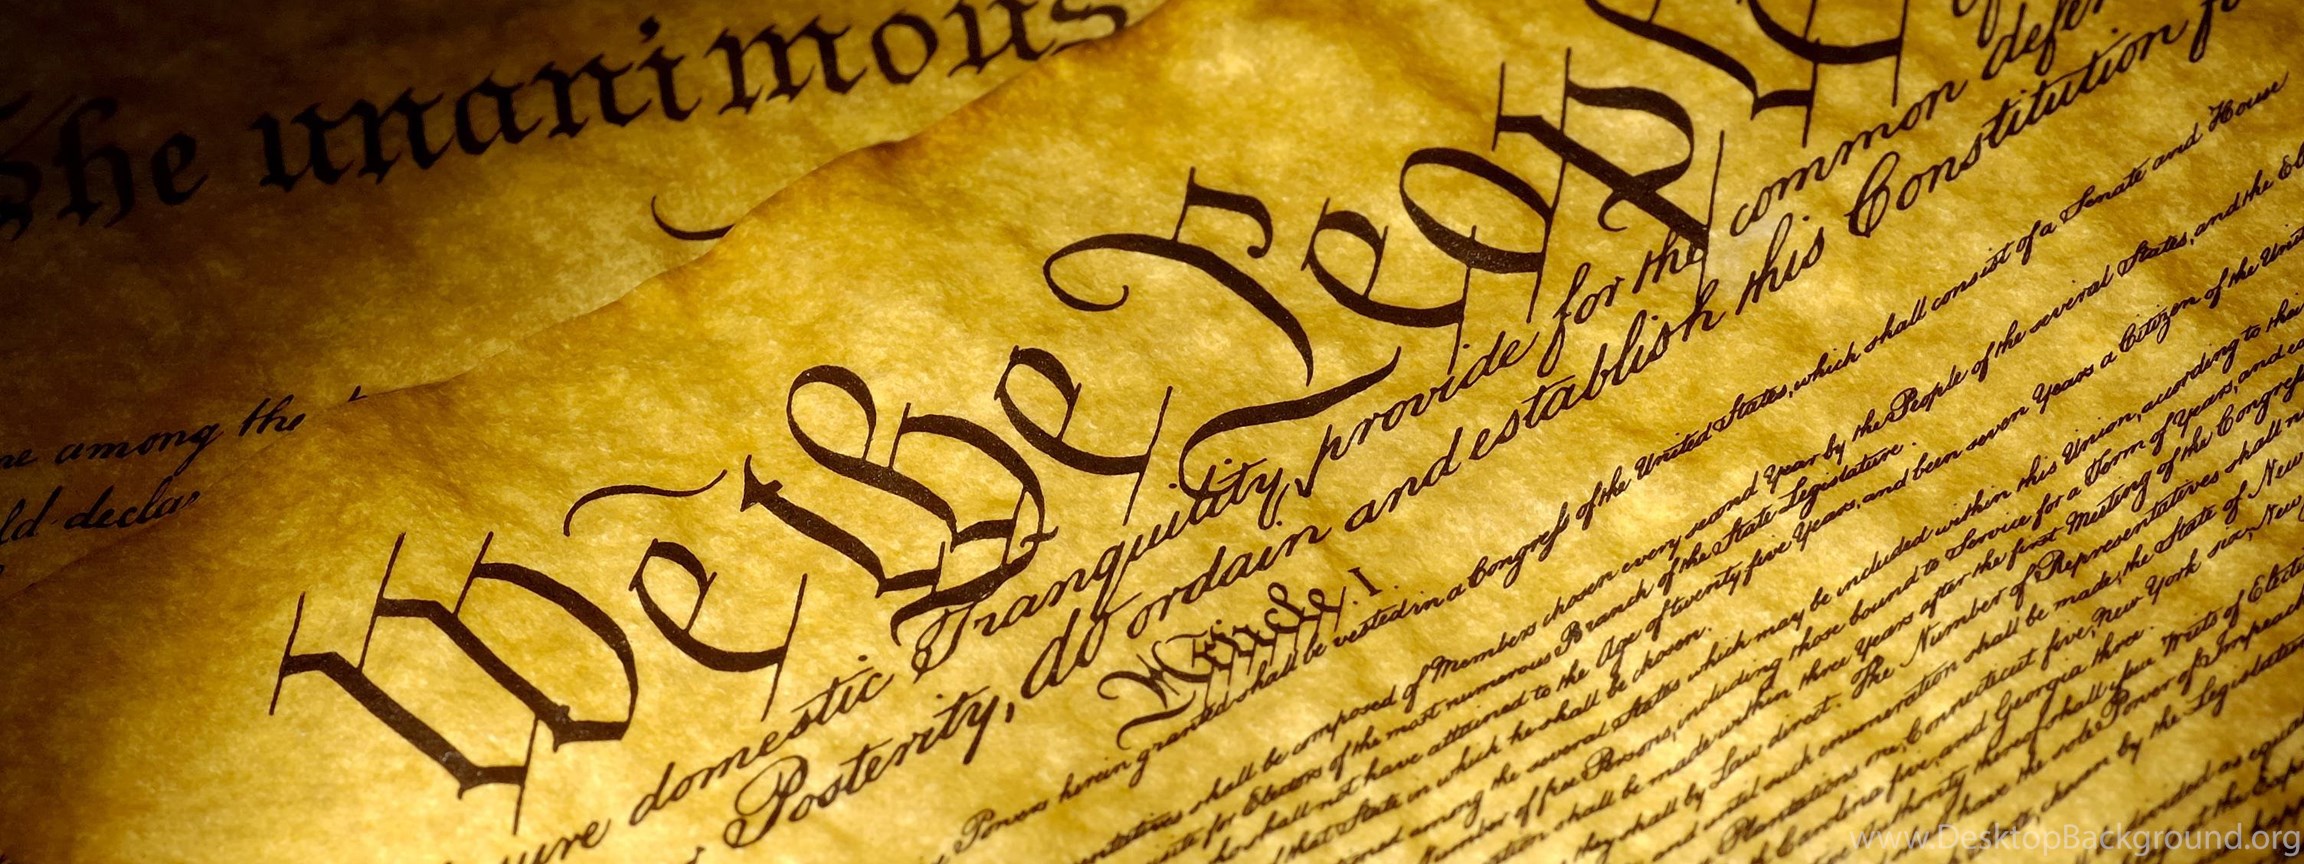 The unanimous
among the
We the People
domestic Tranquility, provide for the common
Posterity, do ordain and establish this Constitution
Article. I.
Powers herein granted shall be vested in a Congress of the United States, which shall consist of a Senate and House
shall be composed of Members chosen every second Year by the People of the several States, and the
for Electors of the most numerous Branch of the State Legislature.
shall not have attained to the Age of twenty five Years, and been seven Years a Citizen of the
that State in which he shall be chosen.
among the several States which may be included within this Union, according to
Number of free Persons, including those bound to Service for a Term of Years, and
shall be made within three Years after the first Meeting of the Congress
they shall by Law direct. The Number of Representatives shall
and until such enumeration shall be made, the State of New
Plantations one, Connecticut five, New York six, New
Carolina five, and Georgia three.
thereof shall issue Writs of
have the sole Power of
chosen by the Legislature
divided as
www.DesktopBackground.org